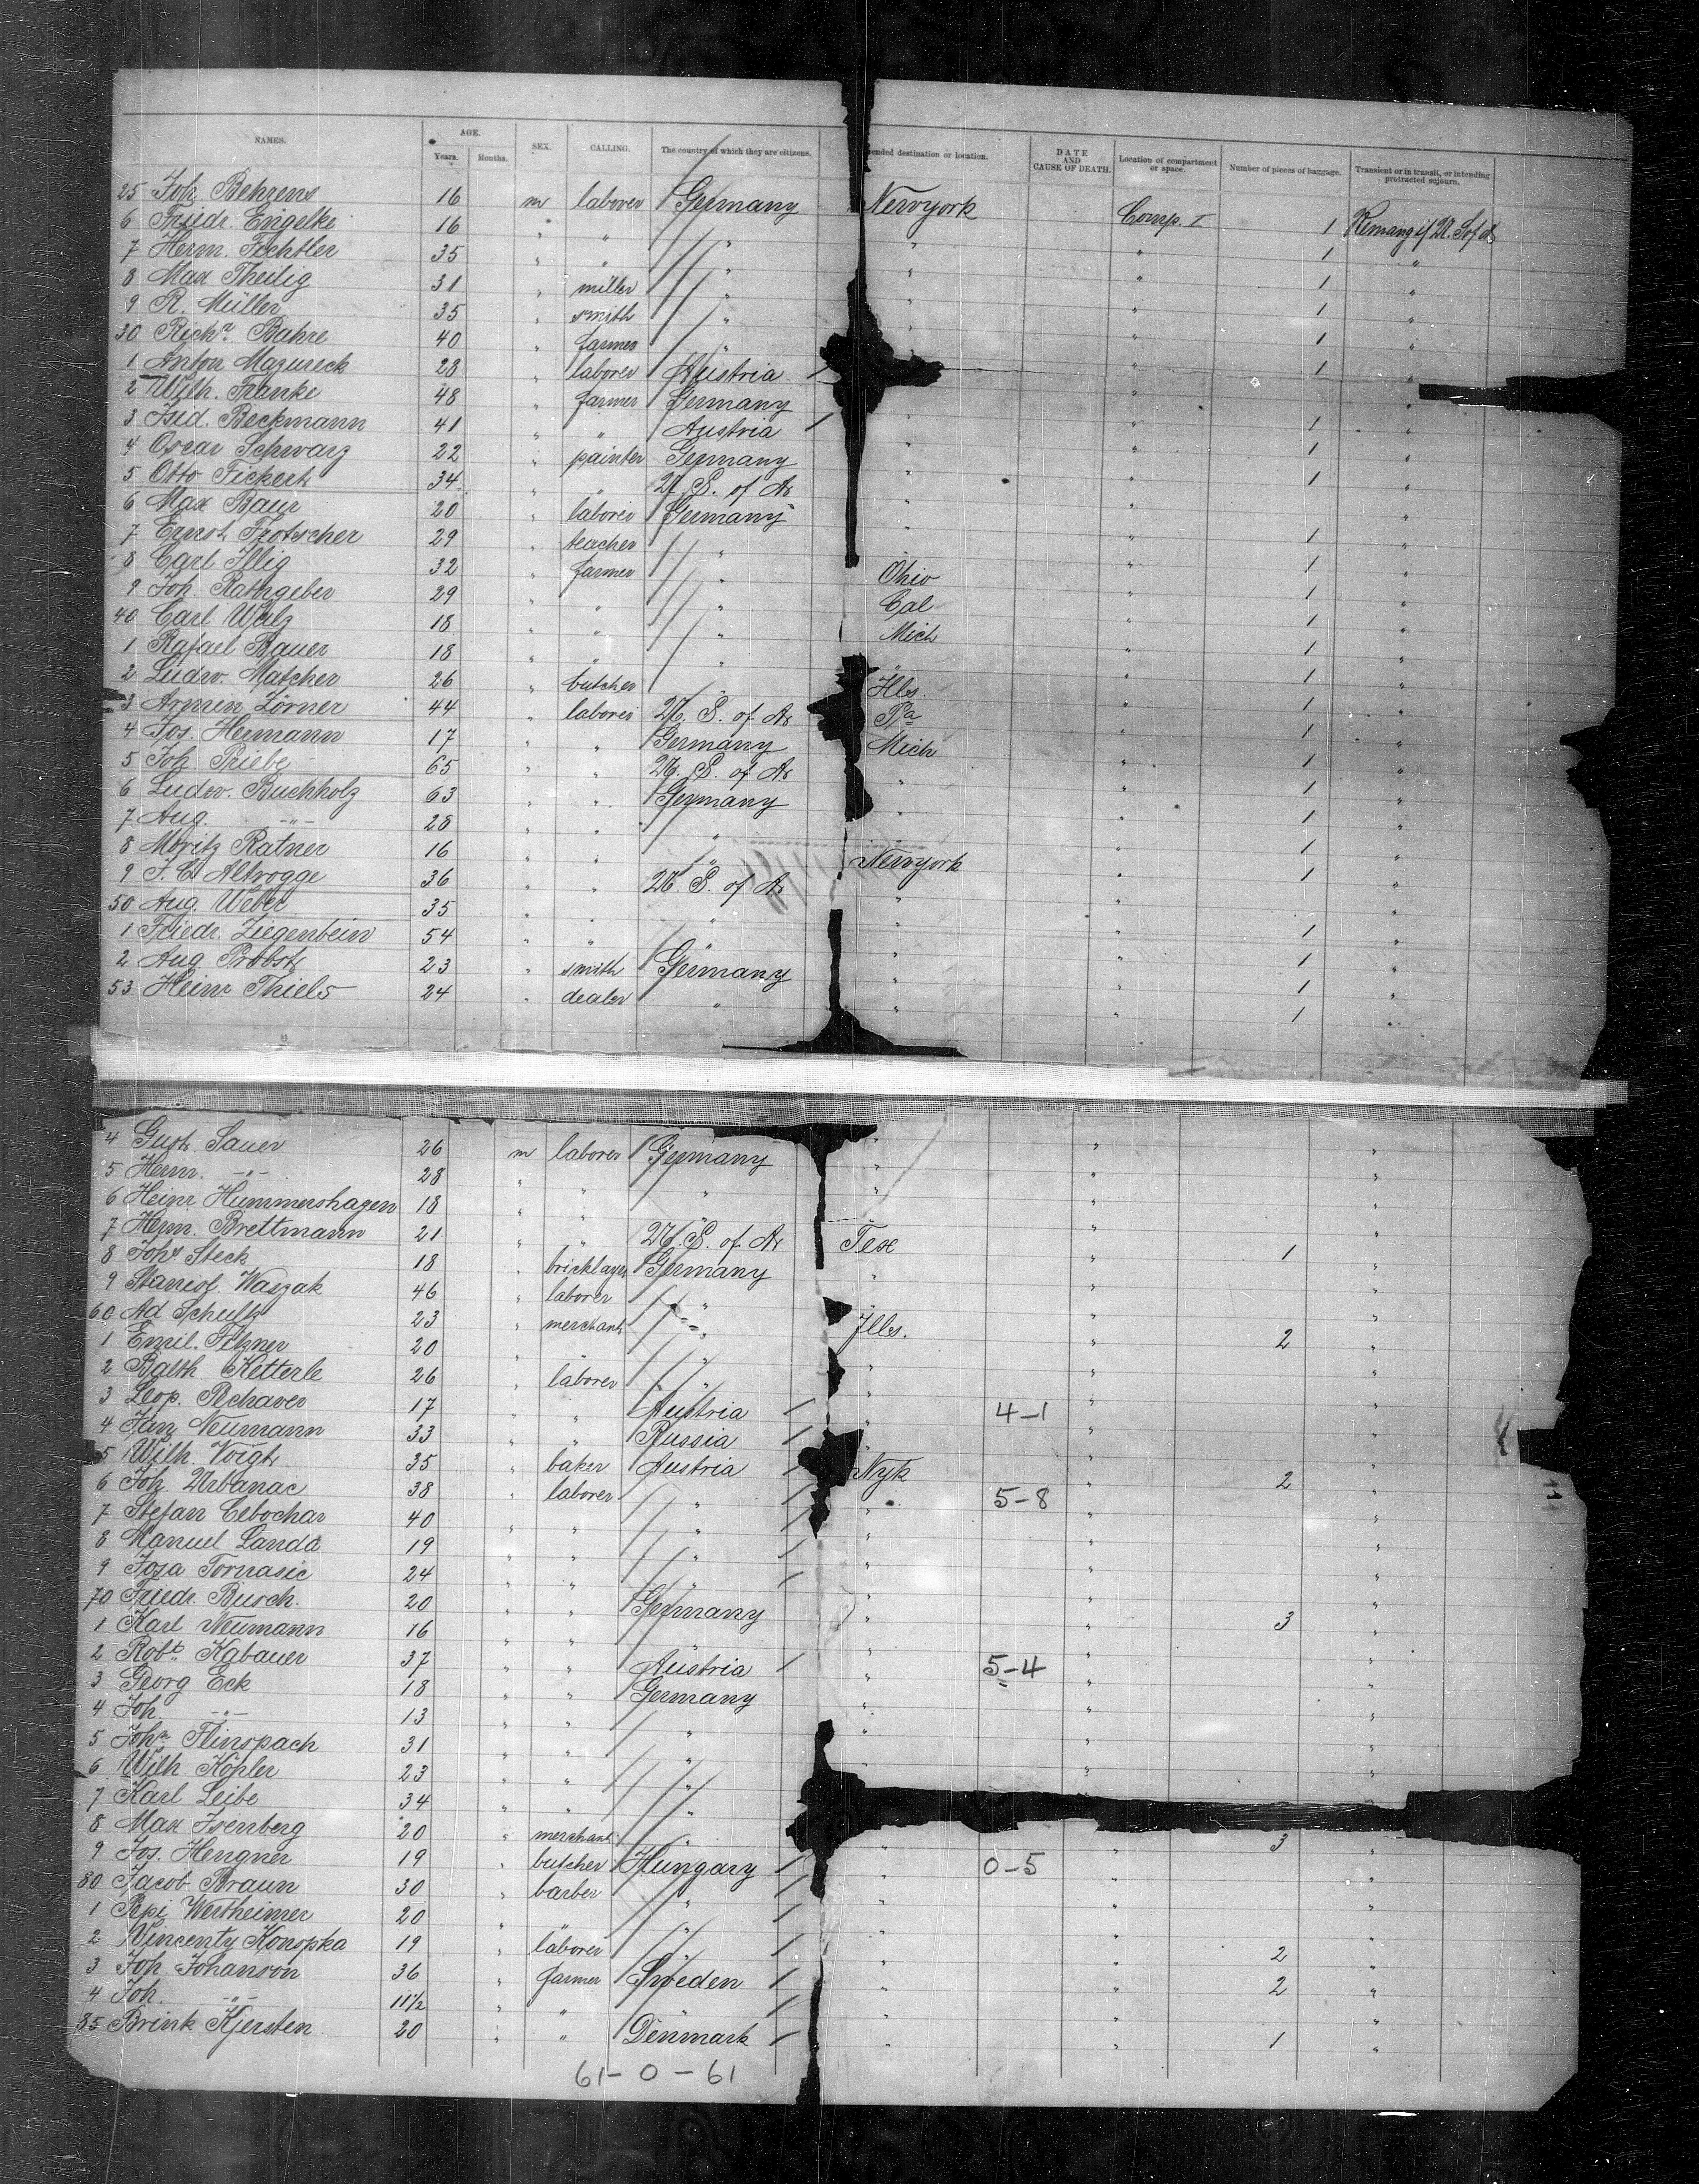 NAMES. AGE. Years. Months. SEX. CALLING. The country of which they are citizens. ended destination or location. DATE AND CAUSE OF DEATH. Location of compartment or space. Number of pieces of baggage. Transient or in transit, or intending protracted sojourn.
25 Joh. Behrens 16 m laborer Germany Newyork Comp. I 1
6 Friedr. Engelke 16 " " " " " 1 "
7 Herm. Fechtler 35 " " " " " 1 "
8 Max Theilig 31 " miller " " " 1 "
9 R. Müller 35 " smith " " " 1 "
30 Richd. Bahre 40 " farmer " " " 1 "
1 Anton Mazureck 28 " laborer Austria " "
2 Wilh. Franke 48 " farmer Germany " " 1 "
3 Jud. Beckmann 41 " " Austria " " 1 "
4 Oscar Schwarz 22 " painter Germany " " 1 "
5 Otto Fickert 34 " " U. S. of A. " " "
6 Max Baur 20 " laborer Germany " " 1 "
7 Ernst Trotscher 29 " teacher " " " 1 "
8 Carl Illig 32 " farmer " Ohio " 1 "
9 Joh. Rathgeber 29 " " " Cal " 1 "
40 Carl Walz 18 " " " Mich " 1 "
1 Rafael Bauer 18 " " " " " 1 "
2 Ludw. Matcher 26 " butcher " Ills. " 1 "
3 Armin Zörner 44 " laborer U. S. of A. Pa " 1 "
4 Jos. Hermann 17 " " Germany Mich " 1 "
5 Joh. Priebe 65 " " U. S. of A. " " 1 "
6 Ludw. Buchholz 63 " " Germany " " 1 "
7 Aug. -"- 28 " " " " " 1 "
8 Moritz Ratner 16 " " " Newyork " 1 "
9 F. C. Altrogge 36 " " U. S. of A. " " "
50 Aug. Weber 35 " " " " " 1 "
1 Friedr. Ziegenbein 54 " " " " " 1 "
2 Aug. Probst 23 " smith Germany " " 1 "
53 Heinr. Thiels 24 " dealer " " " 1 "
4 Gust. Sauer 26 m laborer Germany " " "
5 Herm. -"- 28 " " " " " "
6 Heinr. Hummershagen 18 " " " " " "
7 Herm. Brettmann 21 " " U. S. of A. Tex " 1 "
8 Johs Steck 18 " bricklayer Germany " " "
9 Stanisl. Waszak 46 " laborer " " " "
60 Ad. Schultz 23 " merchant " Ills. " 2 "
1 Emil. Felzner 20 " " " " " "
2 Balth Ketterle 26 " laborer " " " "
3 Leop. 17 " " Austria " 4-1 " "
4 Neumann 33 " " Russia " " "
5 Wilh. Voigt 35 " baker Austria Nyk " 2 "
6 Joh. Urbanac 38 " laborer " " 5-8 " "
7 Stefan Cebochar 40 " " " " " "
8 Manuel Landa 19 " " " " " "
9 Joza Tomasic 24 " " " " " "
70 Friedr. Busch. 20 " " Germany " " 3 "
1 Karl Neumann 16 " " " " " "
2 Robt. Kabauer 37 " " Austria " 5-4 " "
3 Georg Eck 18 " " Germany " " "
4 Joh. -"- 13 " " " " " "
5 Johs Flinspach 31 " " " " "
6 Wilh Köhler 23 " " "
7 Karl Leibe 34 " " "
8 Max Isenberg 20 " merchant " " " 3 "
9 Jos. Hengner 19 " butcher Hungary " 0-5 " "
80 Jacob Braun 30 " barber " " " "
1 Pepi Wertheimer 20 " " " " " "
2 Wincenty Konopka 19 " laborer " " " 2 "
3 Joh Johanson 36 " farmer Sweden " " 2 "
4 Joh. -"- 11½ " " " " " "
85 Brink Kjersten 20 " " Denmark " " 1 "
61-0-61